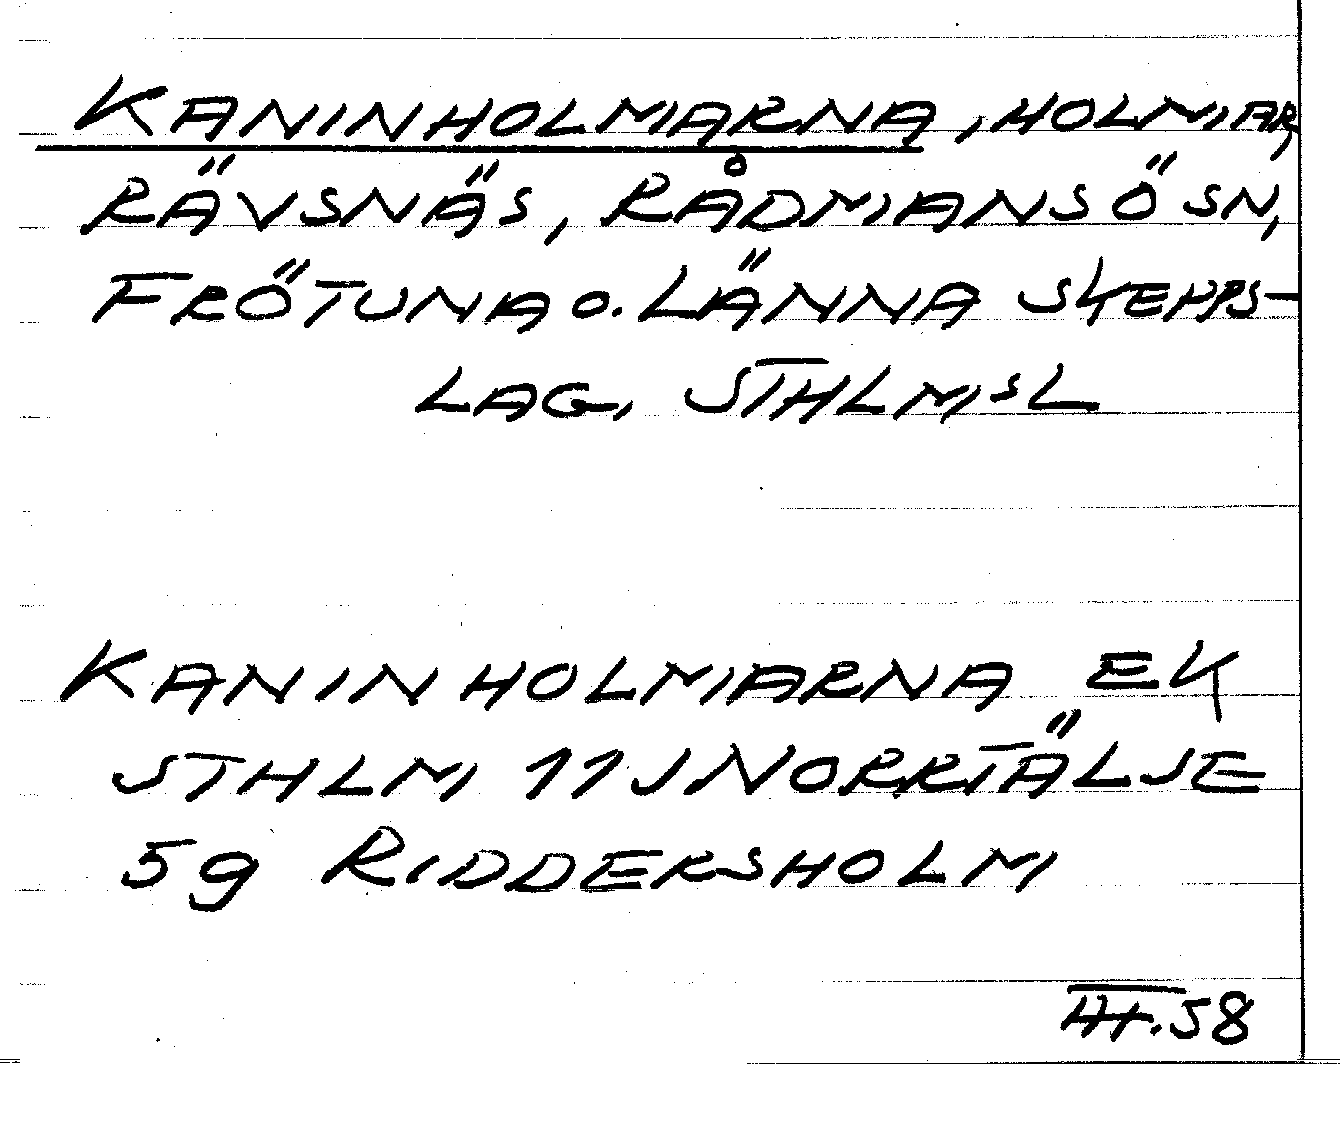 KANINHOLMARNA, HOLMAR,
RÄVSNÄS, RÅDMANSÖ SN,
FRÖTUNA o. LÄNNA SKEPPS-
LAG, STHLMSL
KANINHOLMARNA EK
STHLM 11J NORRTÄLJE
5g RIDDERSHOLM